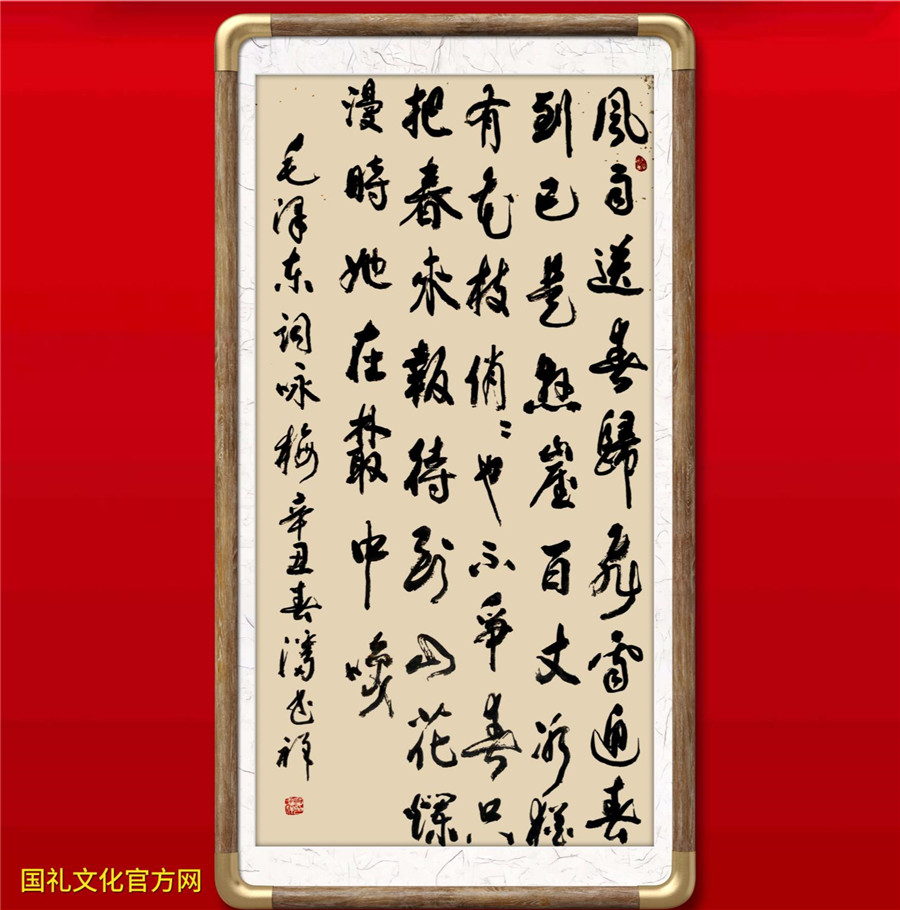 風雨送春歸飛雪迎春
到已是懸崖百丈冰猶
有花枝俏俏也不爭春只
把春來報待到山花爛
漫時她在叢中
毛澤东詞咏梅辛丑春潘祥
国礼文化官方网